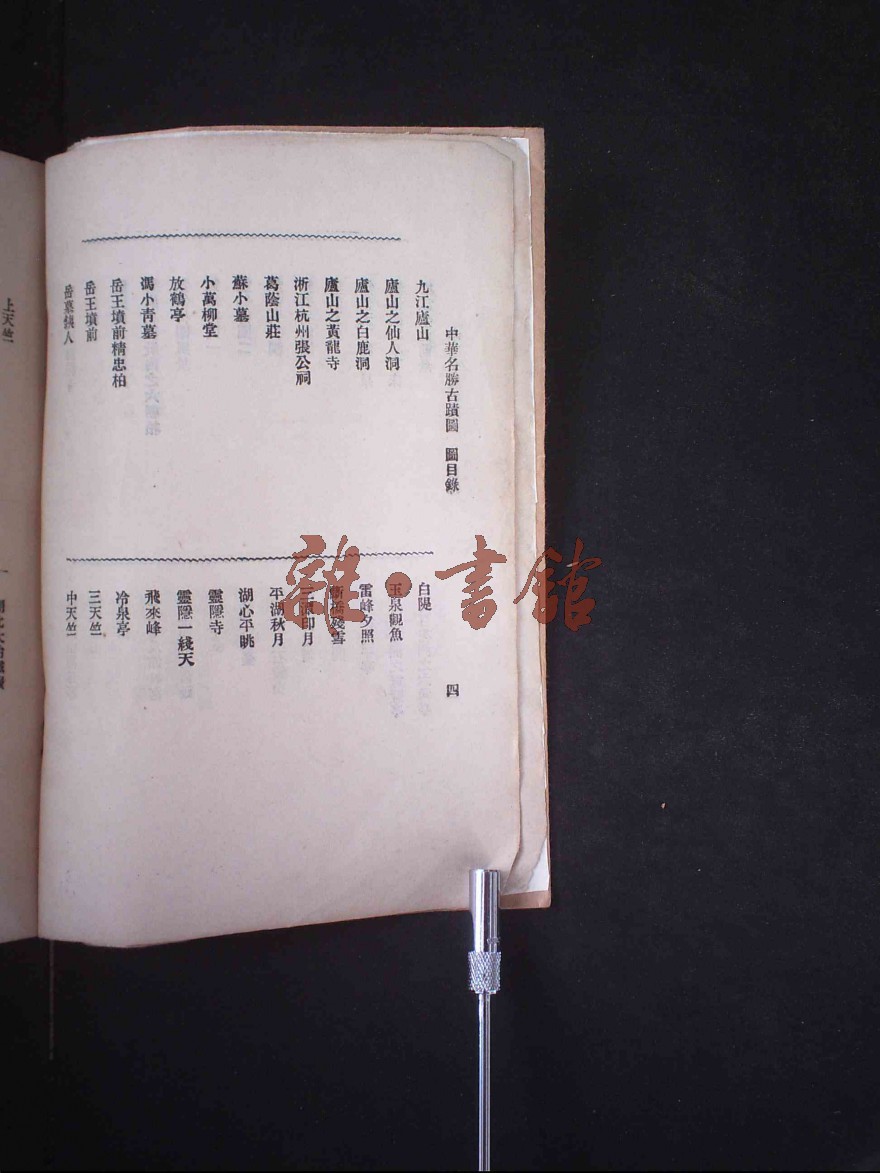 中華名勝古蹟圖 圖目錄 四
九江廬山
廬山之仙人洞
廬山之白鹿洞
廬山之黃龍寺
浙江杭州張公祠
葛蔭山莊
蘇小墓
小萬柳堂
放鶴亭
馮小青墓
岳王墳前精忠柏
岳王墳前
岳墓鐵人
白隄
玉泉觀魚
雷峰夕照
斷橋殘雪
三潭印月
平湖秋月
湖心平眺
靈隱寺
靈隱一綫天
飛來峰
冷泉亭
三天竺
中天竺
上天竺
雜·書館